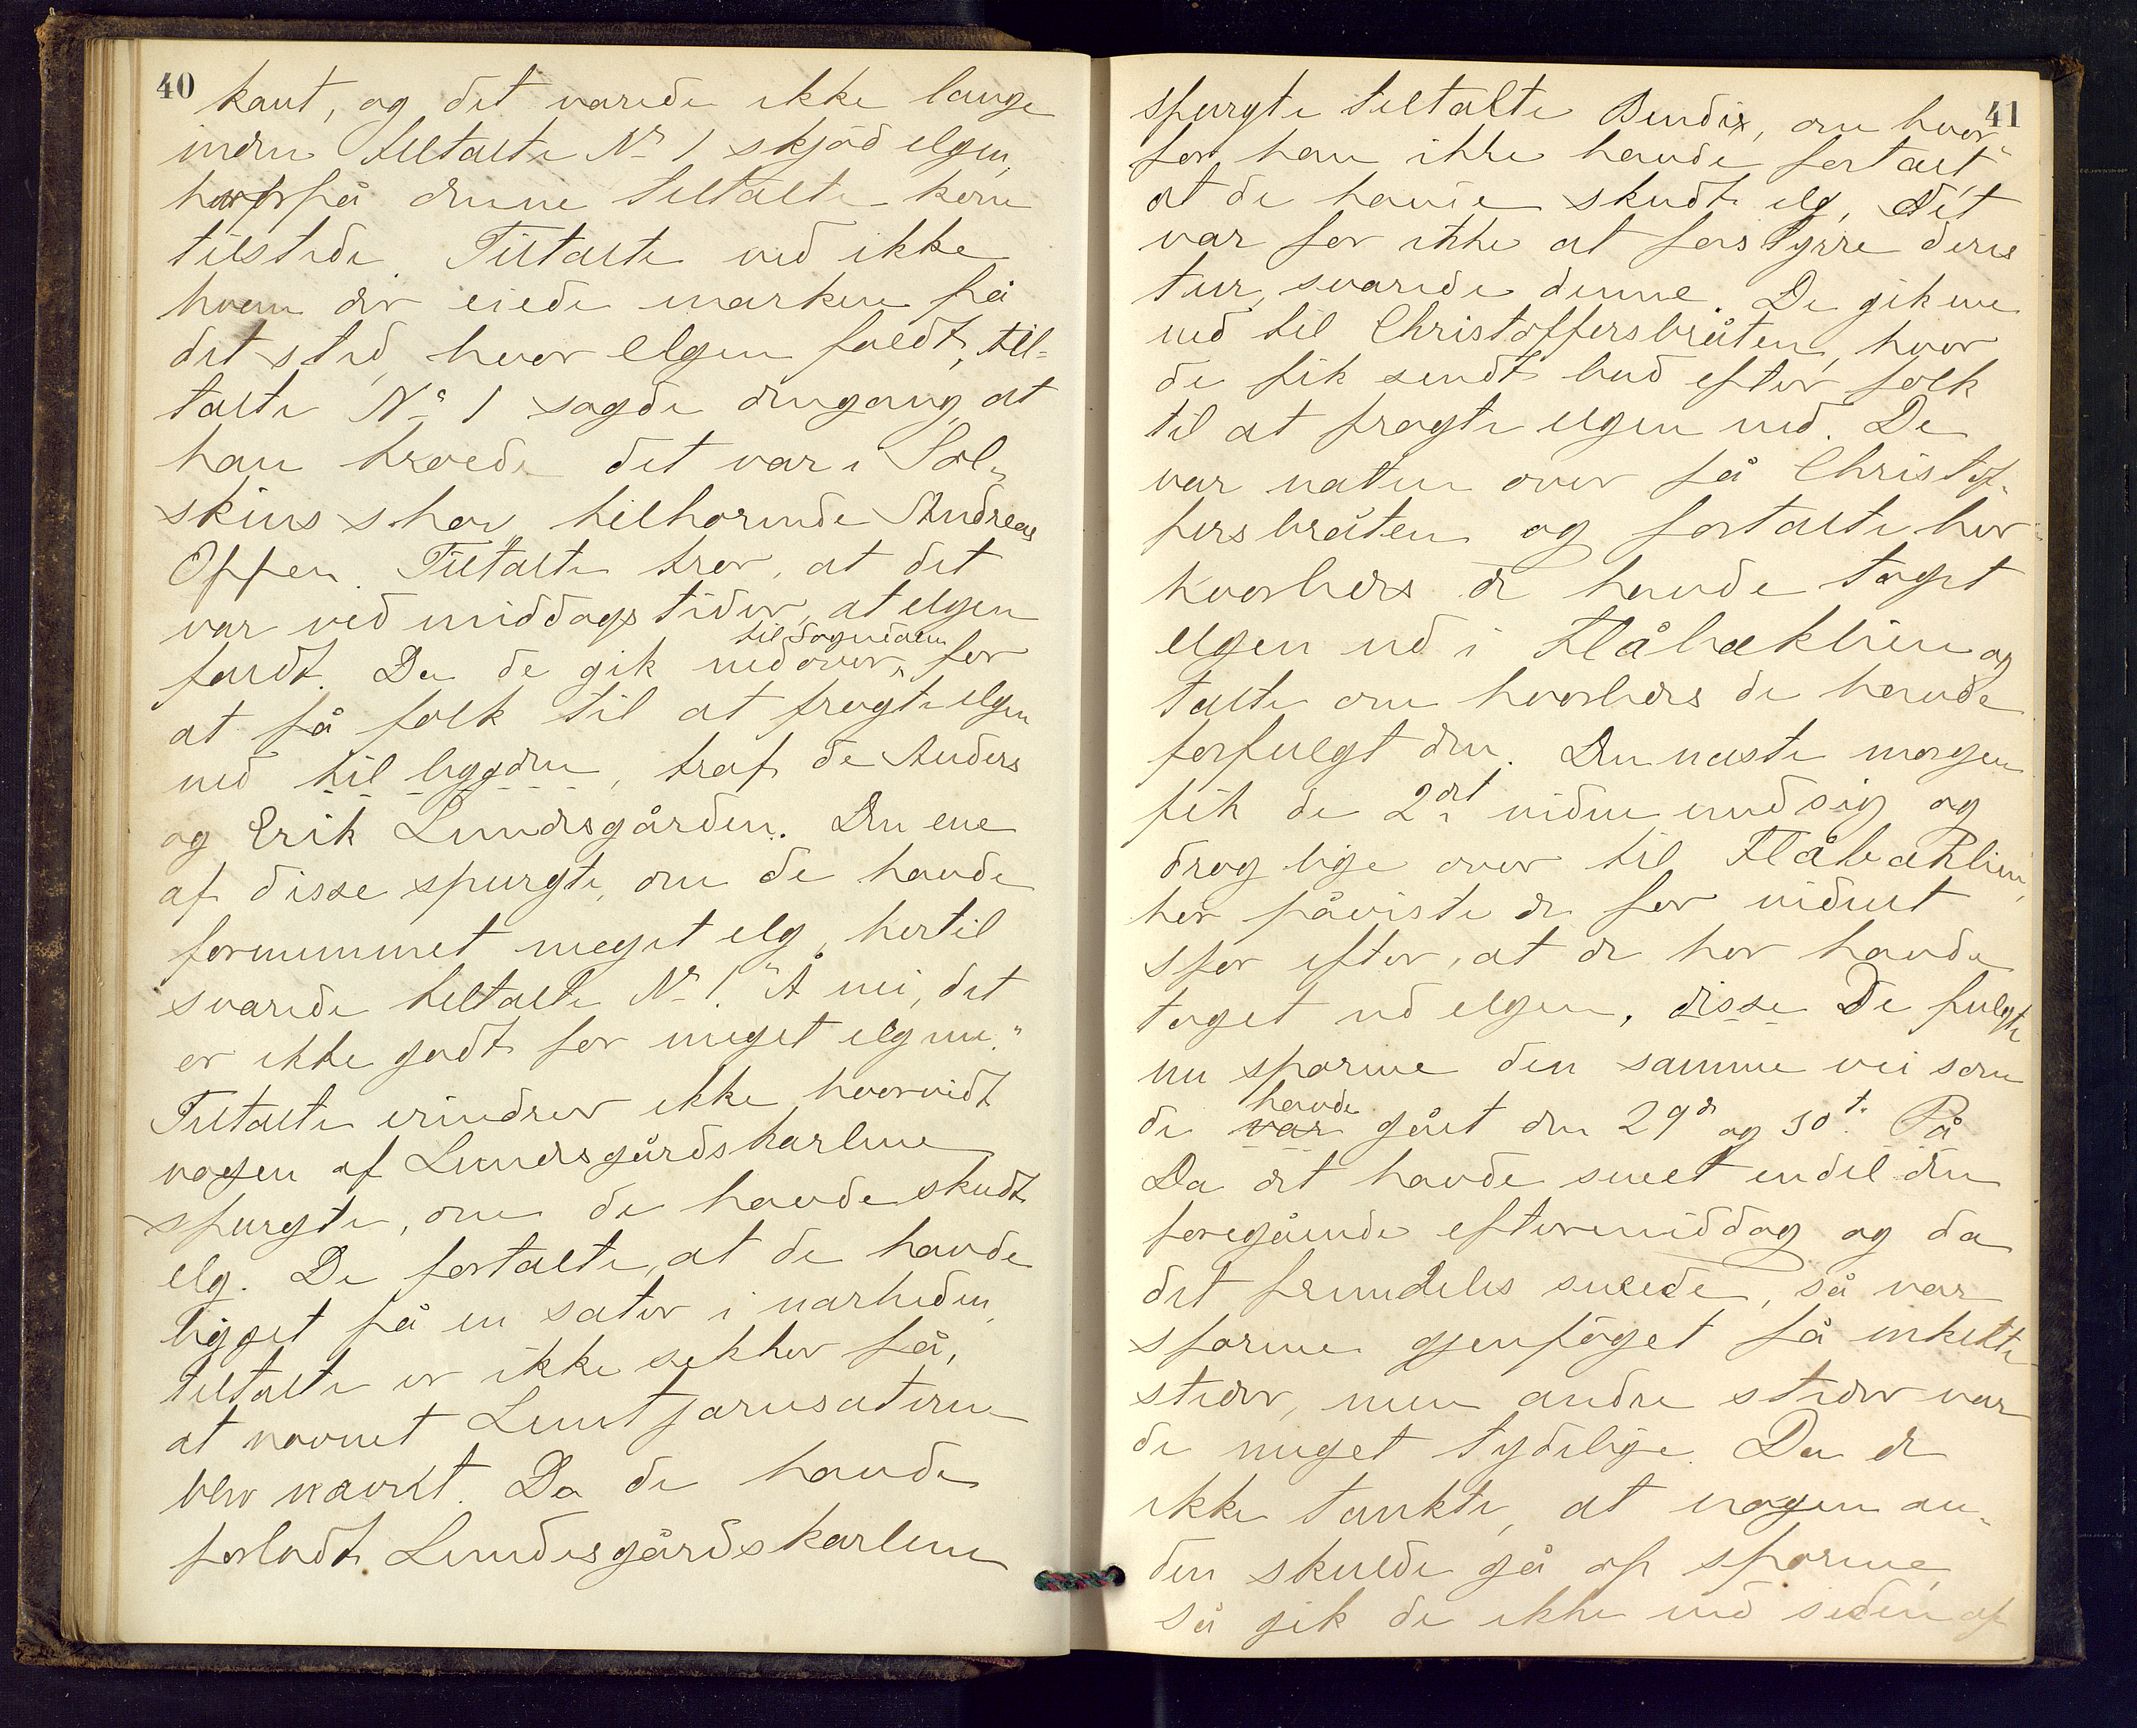 40
kant, og det varede ikke længe
inden tiltalte No 1 skjød elgen,
hvorpå denne tiltalte kom
tilstede. Tiltalte ved ikke
hvem der eiede marken på
det sted, hvor elgen faldt, til-
talte No 1 sagde dengang, at
han troede det var i Sol-
skins skov tilhørende Andreas
Oppen. Tiltalte tror, at det
var ved middags tider, at elgen
faldt. Da de gik nedover til Sognedalen for
at få folk til at fragte elgen
ned til bygden, traf de Anders
og Erik Lundesgården. Den ene
af disse spurgte, om de havde
fornummet meget elg, hertil
svarede tiltalte No 1. "Å nei, det
er ikke godt for meget elg nu."
Tiltalte erindrer ikke hvorvidt
nogen af Lundesgårdskarlene
spurgte, om de havde skudt
elg. De fortalte, at de havde
ligget på en sæter i nærheden,
tiltalte er ikke sikker på,
at navnet Lintjernsæteren
blev nævnt. Da de havde
forladt Lundesgårdskarlene
41
spurgte tiltalte Bendix, om hvor-
for han ikke havde fortalt
at de havde skudt elg, det
var for ikke at forstyrre deres
tur, svarede denne. De gik nu
ned til Christoffersbråten, hvor
de fik sendt bud efter folk
til at fragte elgen ned. De
var natten over på Christof-
fersbråten og fortalte her
hvorledes de havde taget
elgen ud i Flåbæklien og
talte om hvorledes de havde
forfulgt den. Den næste morgen
fik de 2det vidne med sig og
drog lige over til Flåbæklien,
her påviste de for vidnet
spor efter, at de her havde
taget ud elgen, disse De fulgte
nu sporene den samme vei som
de var havde gået den 29de og 30t. På
Da det havde sneet endel den
foregående eftermiddag og da
det fremdeles sneede, så var
sporene gjenføget på enkelte
steder, men andre steder var
de meget tydelige. Da de
ikke tænkte, at nogen an-
den skulde gå op sporene,
så gik de ikke ved siden af